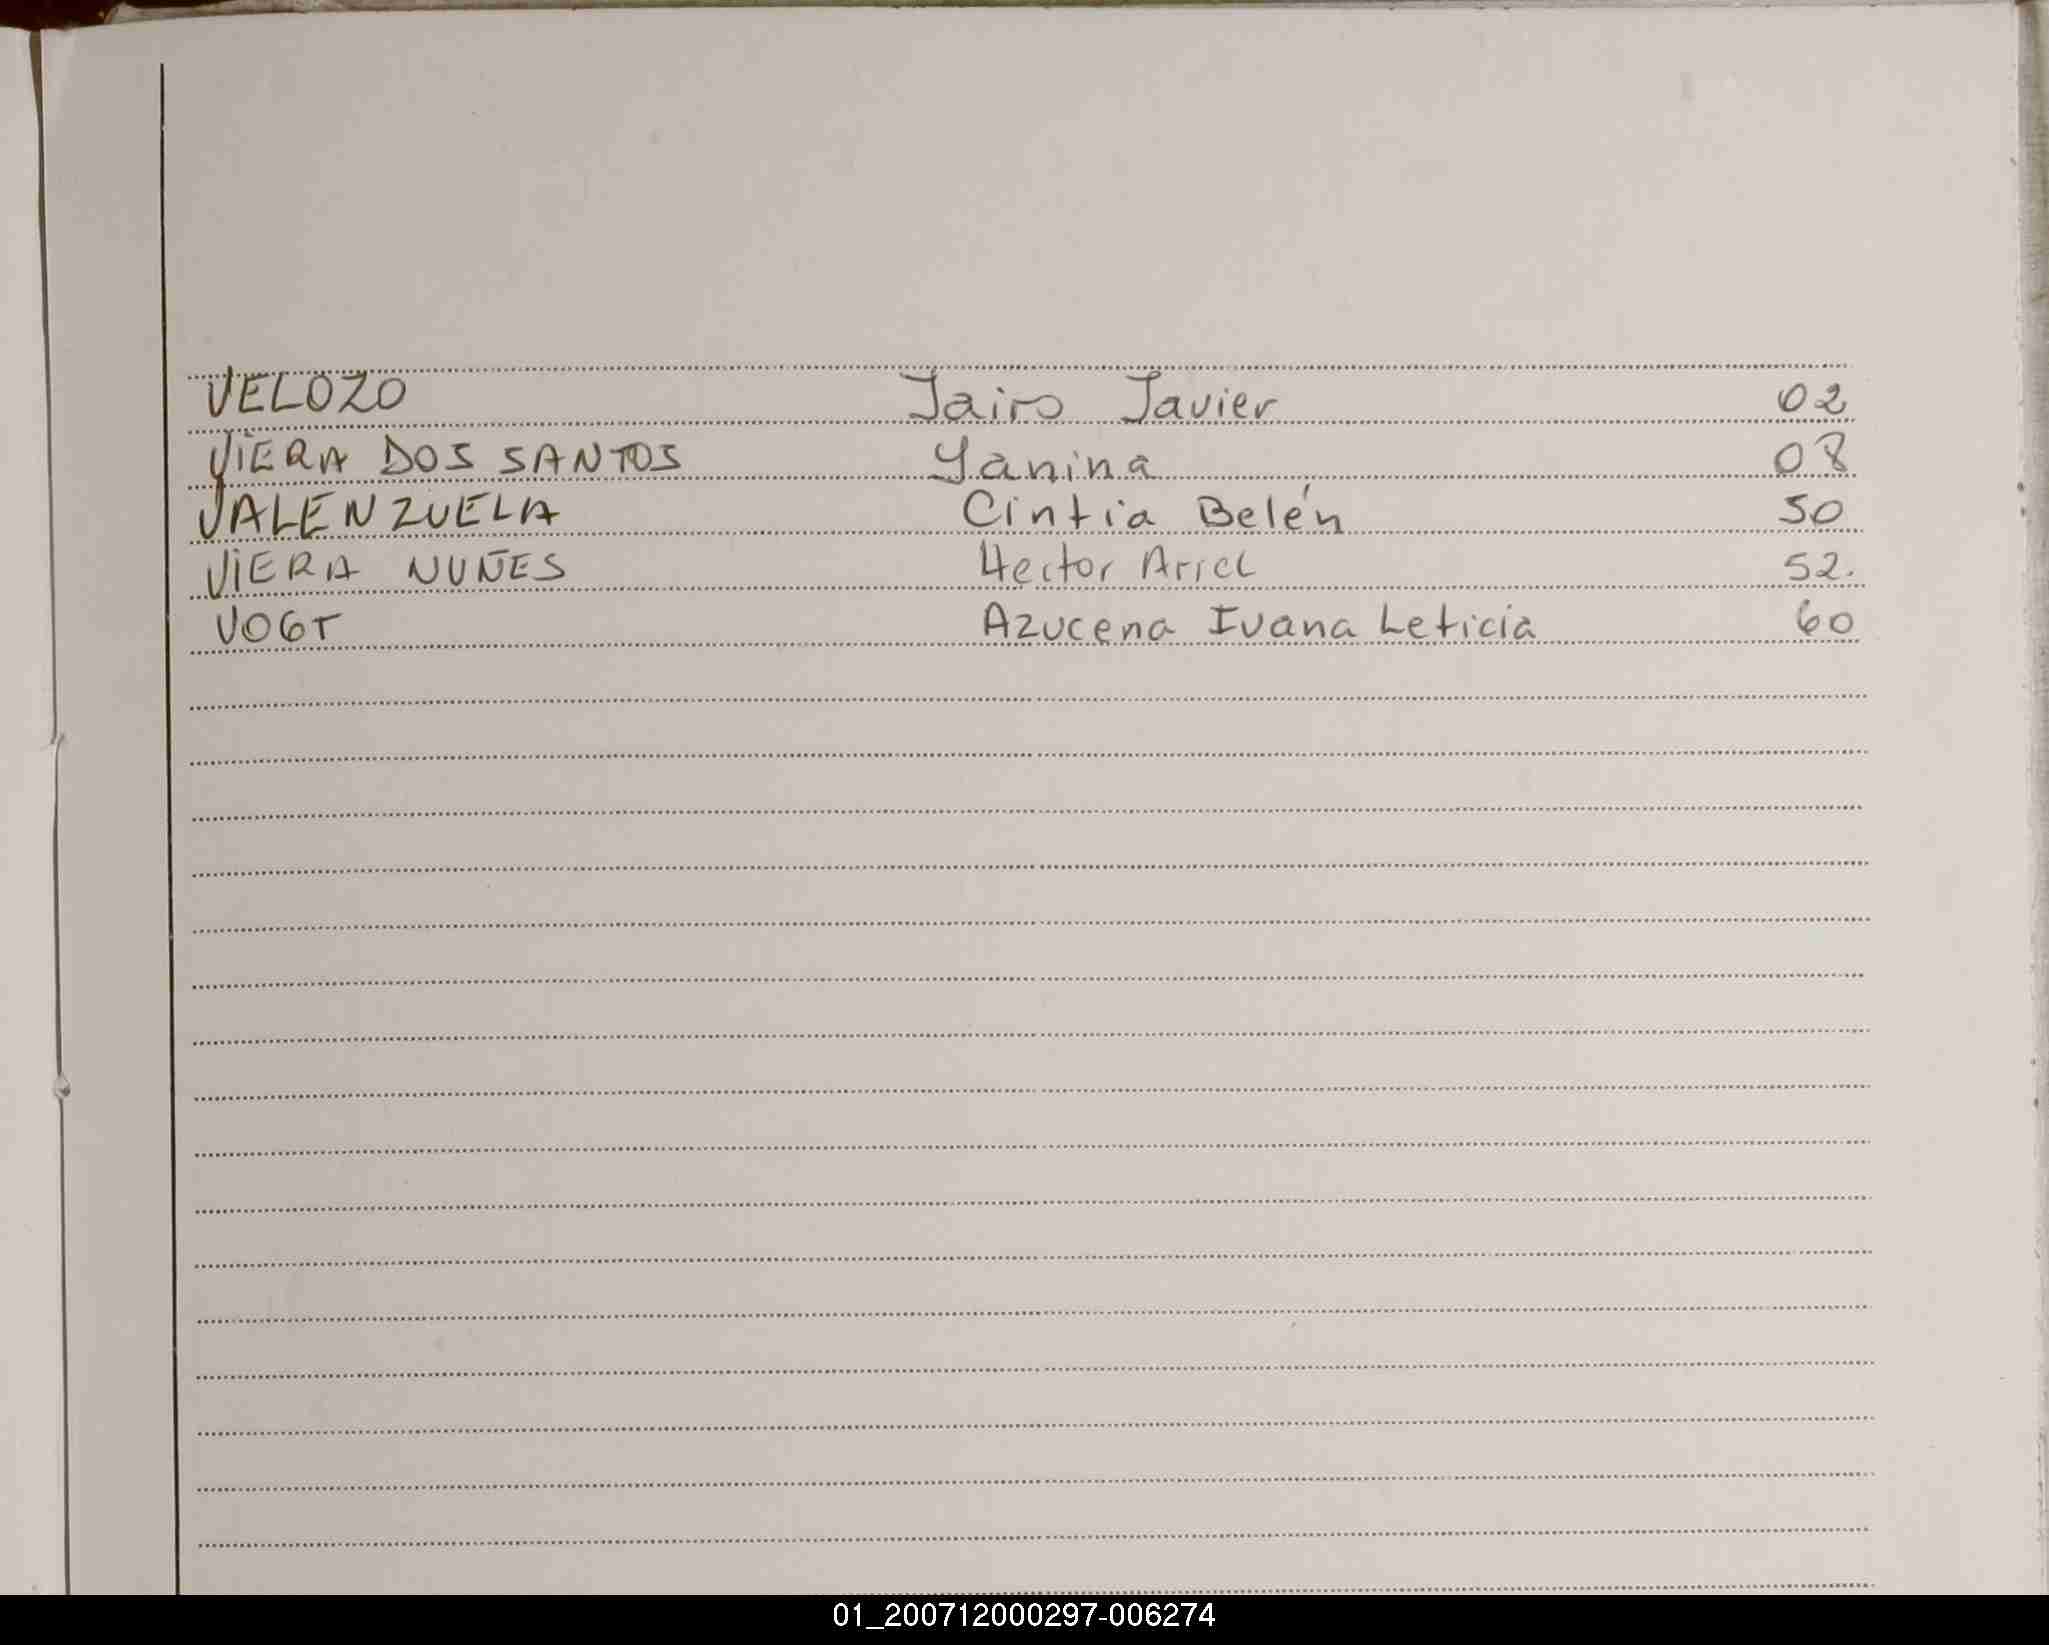 VELOZO Jairo Javier 02
VIERA DOS SANTOS Yanina 08
VALENZUELA Cintia Belén 50
VIERA NUÑES Hector Ariel 52.
VOGT Azucena Ivana Leticia 60
01_200712000297-006274